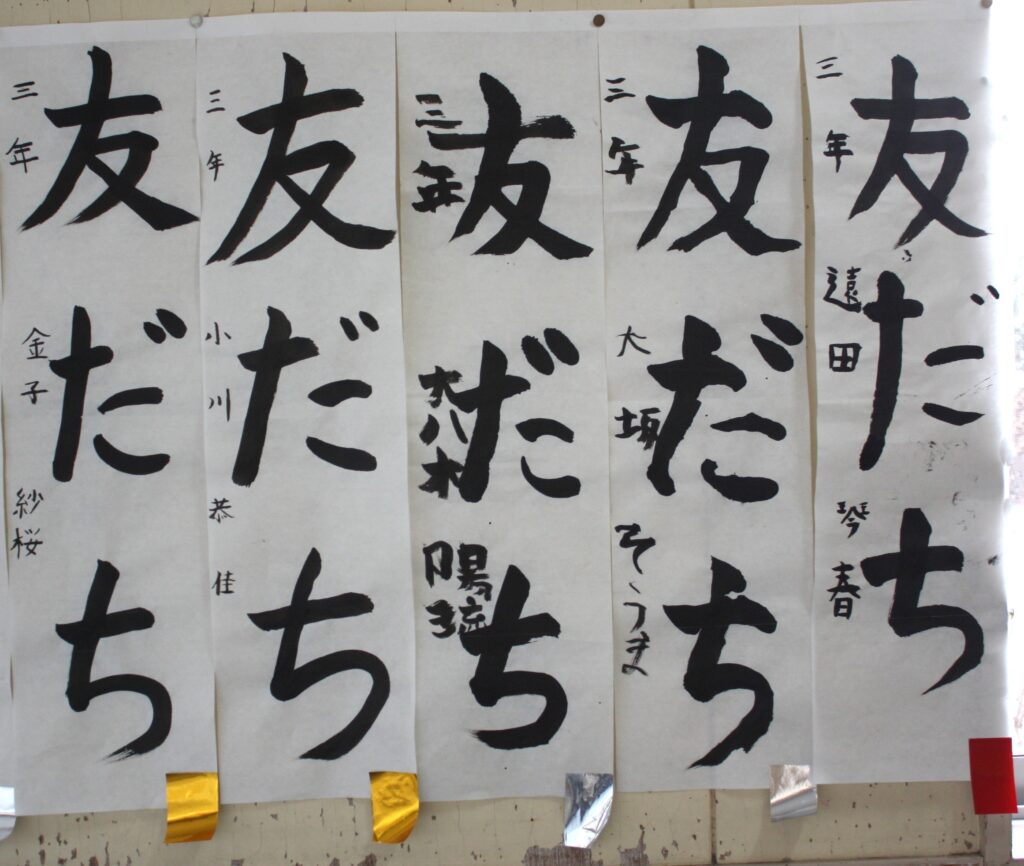 友だち
三年 遠田 琴春
友だち
三年 大坂 そうま
友だち
三年 大八木 陽琉
友だち
三年 小川 恭佳
友だち
三年 金子 紗桜